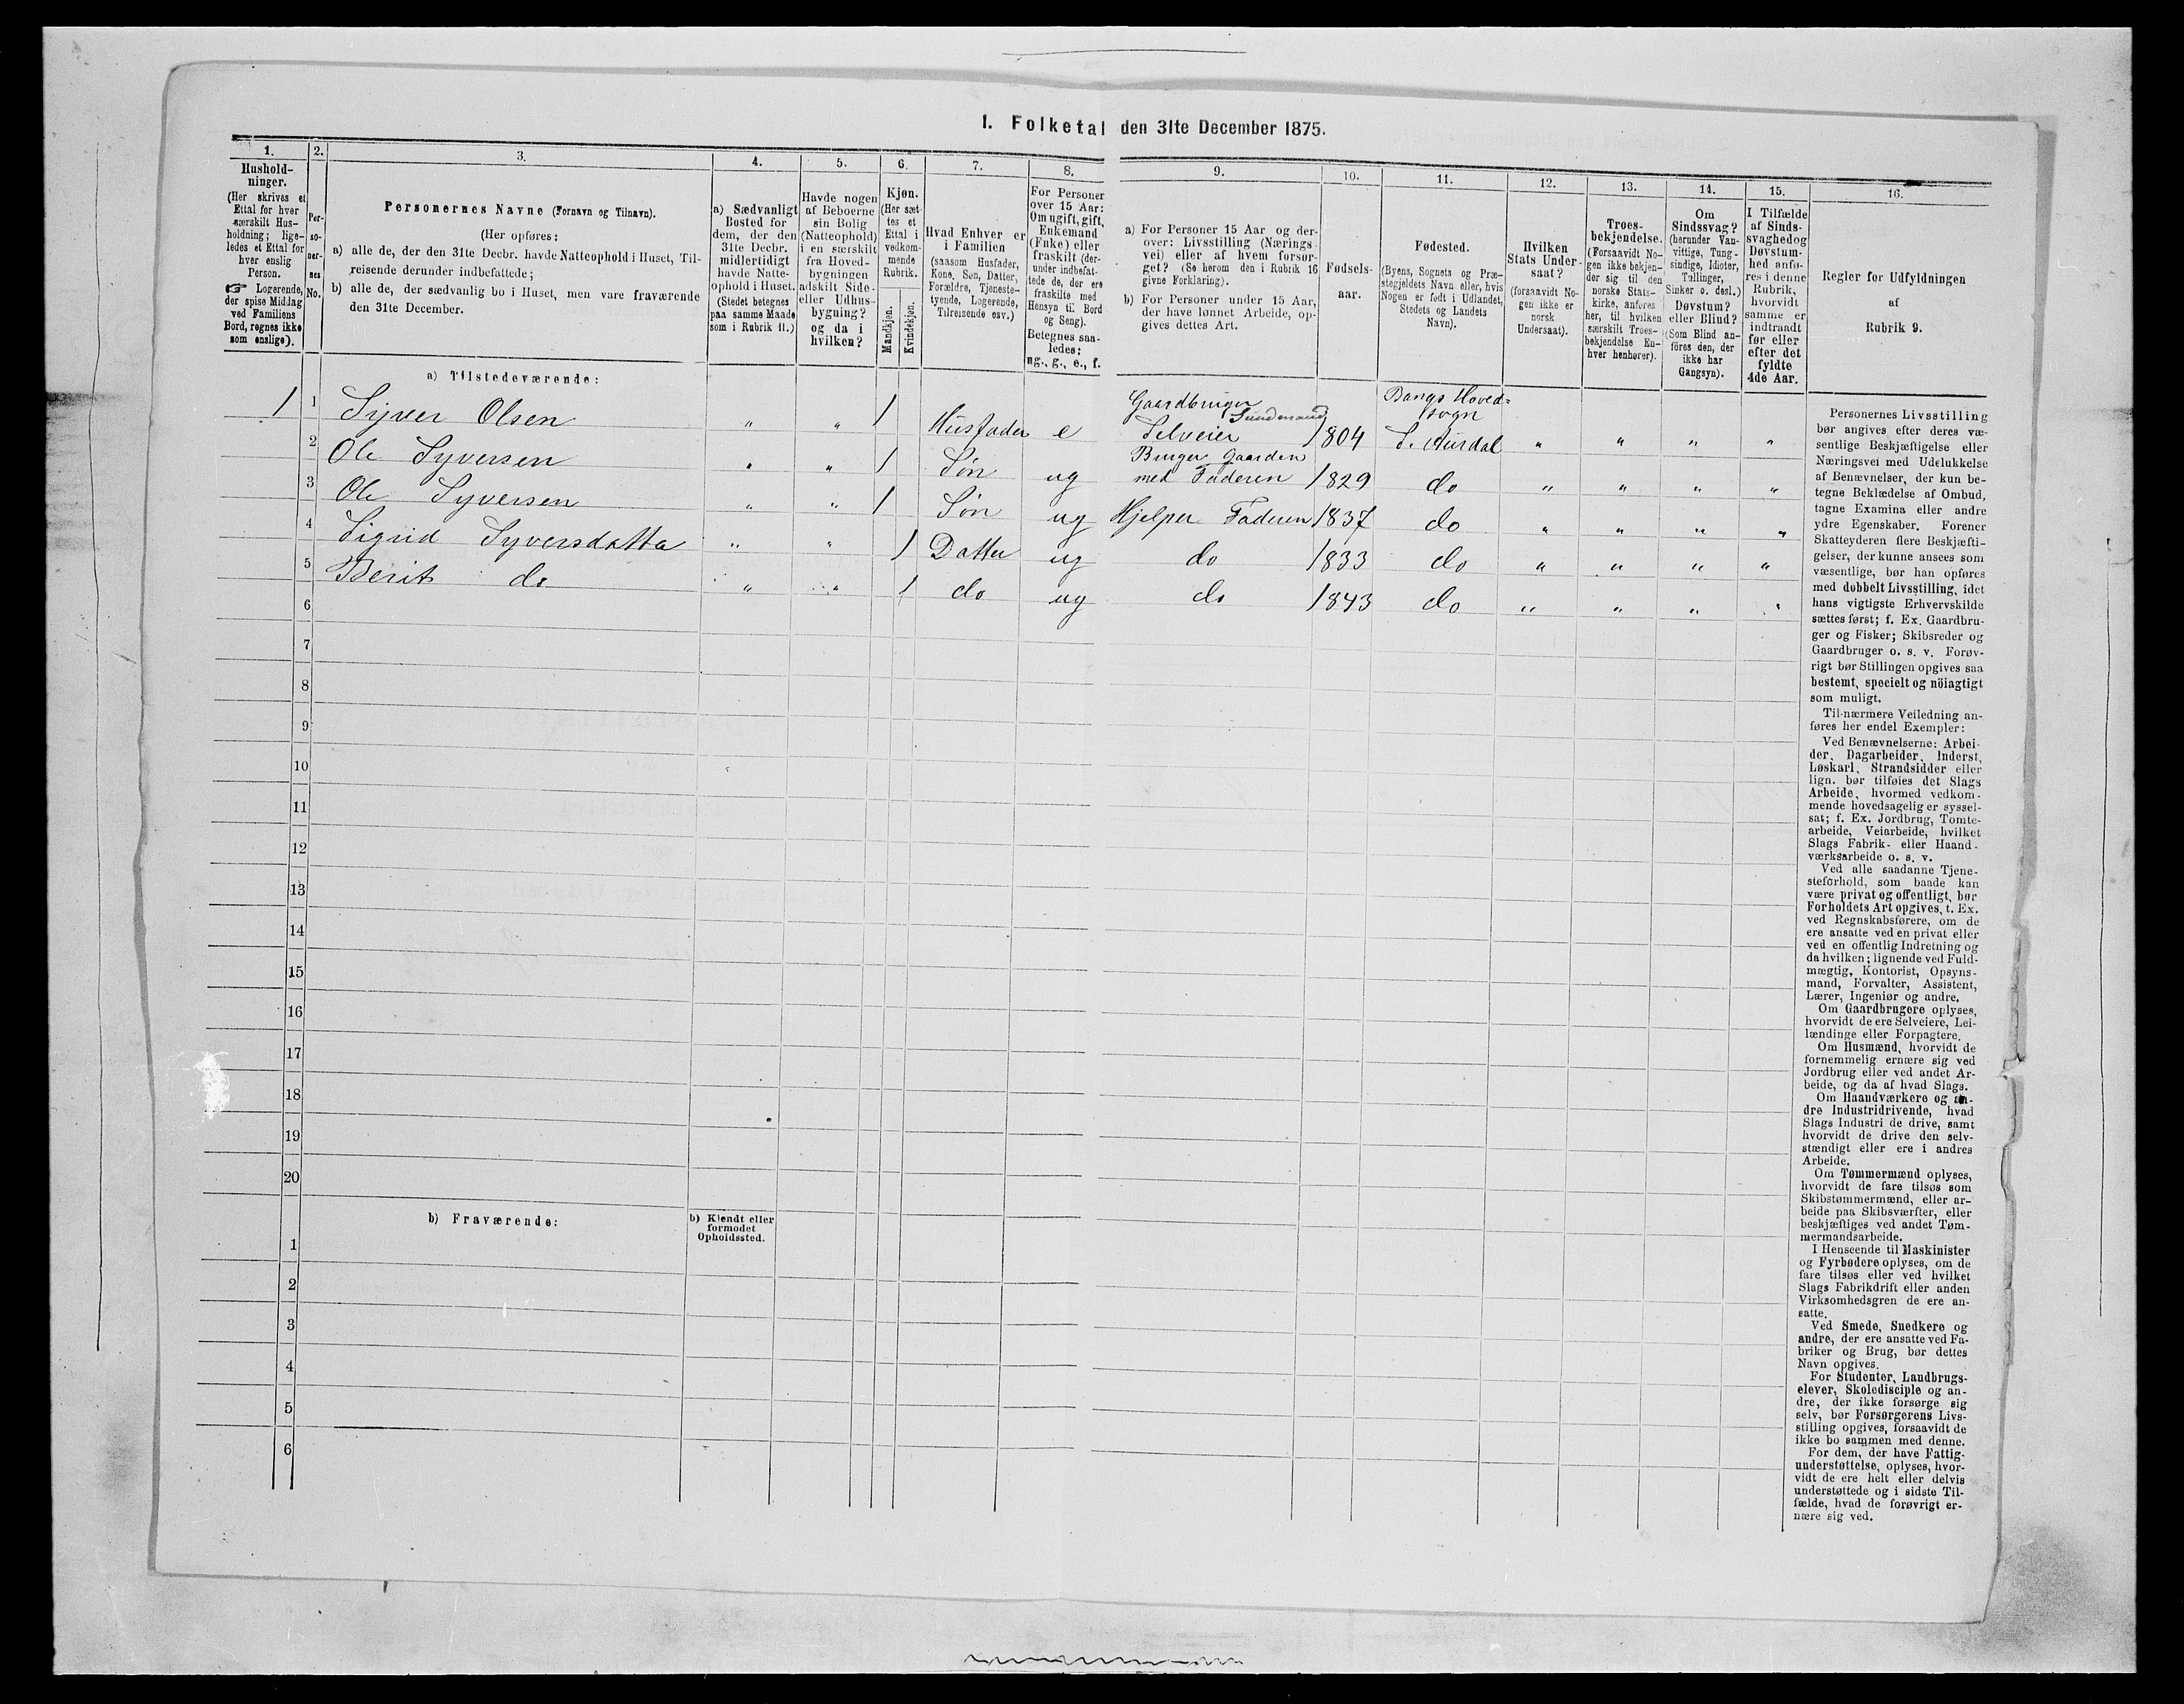 1. Folketal den 31te December 1875.
1.
Hushold-
ninger.
(Her skrives et
Ettal for hver
særskilt Hus-
holdning; lige-
ledes et Ettal for
hver enslig
Person.
☞ Logerende,
der spise Middag
ved Familiens
Bord, regnes ikke
som enslige).
2.
Per-
so-
ner-
nes
No.
3.
Personernes Navne (Fornavn og Tilnavn).
(Her opføres:
a) alle de, der den 31te Decbr. havde Natteophold i Huset, Til-
reisende derunder indbefattede;
b) alle de, der sædvanlig bo i Huset, men vare fraværende
den 31te December.
4.
a) Sædvanligt
Bosted for
dem, der den
31te Decbr.
midlertidigt
havde Natte-
ophold i Huset.
(Stedet betegnes
paa samme Maade
som i Rubrik 11.)
5.
Havde nogen
af Beboerne
sin Bolig
(Natteophold)
i en særskilt
fra Hoved-
bygningen
adskilt Side-
eller Udhus-
bygning?
og da i
hvilken?
6.
Kjøn.
(Her sæt-
tes et
Ettal i
vedkom-
mende
Rubrik.
Mandkjøn.
Kvindekjøn.
7.
Hvad Enhver er
i Familien
(saasom Husfader,
Kone, Søn, Datter,
Forældre, Tjeneste-
tyende, Logerende,
Tilreisende osv.)
8.
For Personer
over 15 Aar:
Om ugift, gift,
Enkemand
(Enke) eller
fraskilt (der-
under indbefat-
tede de, der ere
fraskilte med
Hensyn til Bord
og Seng).
Betegnes saa-
ledes:
ug., g., e., f.
9.
a) For Personer 15 Aar og der-
over: Livsstilling (Nærings-
vei) eller af hvem forsør-
get? (Se herom den i Rubrik 16
givne Forklaring).
b) For Personer under 15 Aar,
der have lønnet Arbeide, op-
gives dettes Art.
10.
Fødsels-
aar.
11.
Fødested.
(Byens, Sognets og Præ-
stegjeldets Navn eller, hvis
Nogen er født i Udlandet,
Stedets og Landets
Navn).
12.
Hvilken
Stats Under-
saat?
(forsaavidt No-
gen ikke er
norsk
Undersaat).
13.
Troes-
bekjendelse.
(Forsaavidt No-
gen ikke bekjen-
der sig til den
norske Stats-
kirke, anføres
her, til hvilken
særskilt Troes-
bekjendelse En-
hver henhører).
14.
Om
Sindssvag?
(herunder Van-
vittige, Tung-
sindige, Idioter,
Tullinger,
Sinker o. desl.)
Døvstum?
eller Blind?
(Som Blind an-
føres den, der
ikke har
Gangsyn).
15.
I Tilfælde
af Sinds-
svaghed og
Døvstum-
hed anfø-
res i denne
Rubrik,
hvorvidt
samme er
indtraadt
før eller
efter det
fyldte
4de Aar.
16.
Regler for Udfyldningen
af
Rubrik 9.
a) Tilstedeværende:
1 1 Syver Olsen " " 1 Husfader e Gaardbruger Selveier 1804 Bangs Hoved= sogn S. Aurdal " " " "
2 Ole Syversen " " 1 Søn ug Bruger Gaarden med Faderen 1829 do " " " "
3 Ole Syversen " " 1 Søn ug Hjelper Faderen 1837 do " " " "
4 Sigrid Syversdatter " " 1 Datter ug do 1833 do " " " "
5 Berit do " " 1 do ug do 1843 do " " " "
6
7
8
9
10
11
12
13
14
15
16
17
18
19
20
b) Fraværende:
b) Kjendt eller
formodet
Opholdssted.
1
2
3
4
5
6
Personernes Livsstilling
bør angives efter deres væ-
sentlige Beskjæftigelse eller
Næringsvei med Udelukkelse
af Benævnelser, der kun be-
tegne Beklædelse af Ombud,
tagne Examina eller andre
ydre Egenskaber. Forener
Skatteyderen flere Beskjæfti-
gelser, der kunne ansees som
væsentlige, bør han opføres
med dobbelt Livsstilling, idet
hans vigtigste Erhvervskilde
sættes først; f. Ex. Gaardbru-
ger og Fisker; Skibsreder og
Gaardbruger o. s. v. Forøv-
rigt bør Stillingen opgives saa
bestemt, specielt og nöiagtigt
som muligt.
Til nærmere Veiledning an-
føres her endel Exempler:
Ved Benævnelserne: Arbei-
der, Dagarbeider, Inderst,
Løskarl, Strandsidder eller
lign. bør tilføies det Slags
Arbeide, hvormed vedkom-
mende hovedsagelig er syssel-
sat; f. Ex. Jordbrug, Tomte-
arbeide, Veiarbeide, hvilket
Slags Fabrik- eller Haand-
værksarbeide o. s. v.
Ved alle saadanne Tjene-
steforhold, som baade kan
være privat og offentligt, bør
Forholdets Art opgives, t. Ex.
ved Regnskabsførere, om de
ere ansatte ved en privat eller
ved en offentlig Indretning og
da hvilken; lignende ved Fuld-
mægtig, Kontorist, Opsyns-
mand, Forvalter, Assistent,
Lærer, Ingeniør og andre.
Om Gaardbrugere oplyses,
hvorvidt de ere Selveiere, Lei-
lændinge eller Forpagtere.
Om Husmænd, hvorvidt de
fornemmelig ernære sig ved
Jordbrug eller ved andet Ar-
beide, og da af hvad Slags.
Om Haandværkere og an-
dre Industridrivende, hvad
Slags Industri de drive, samt
hvorvidt de drive den selv-
stændigt eller ere i andres
Arbeide.
Om Tømmermænd oplyses,
hvorvidt de fare tilsøs som
Skibstømmermænd, eller ar-
beide paa Skibsværfter, eller
beskjæftiges ved andet Tøm-
mermandsarbeide.
I Henseende til Maskinister
og Fyrbødere oplyses, om de
fare tilsøs eller ved hvilket
Slags Fabrikdrift eller anden
Virksomhedsgren de ere an-
satte.
Ved Smede, Snedkere og
andre, der ere ansatte ved Fa-
briker og Brug, bør dettes
Navn opgives.
For Studenter, Landbrugs-
elever, Skoledisciple og an-
dre, der ikke forsørge sig
selv, bør Forsørgerens Livs-
stilling opgives, forsaavidt de
ikke bo sammen med denne.
For dem, der have Fattig-
understøttelse, oplyses, hvor-
vidt de ere helt eller delvis
understøttede og i sidste Til-
fælde, hvad de forøvrigt er-
nære sig ved.